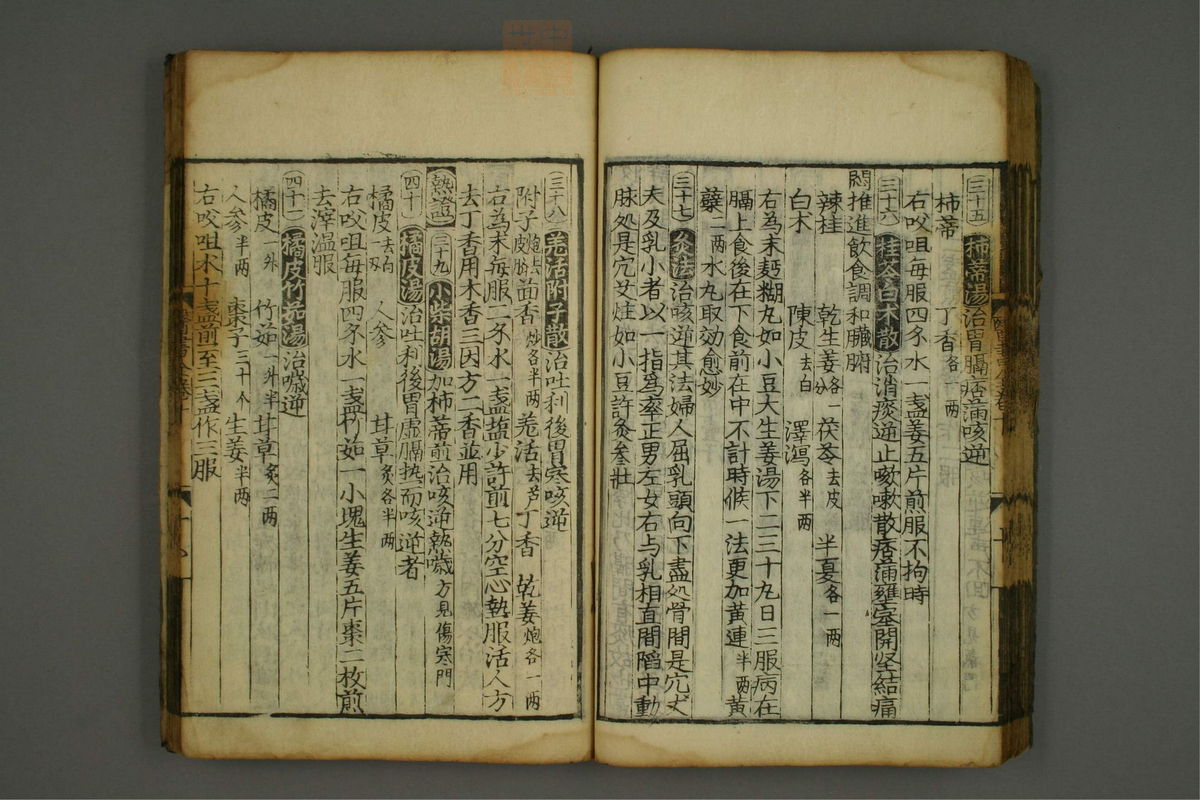 三十五 柿蒂湯 治胷膈痞滿咳逆
柿蒂 丁香 各一兩
右㕮咀每服四錢水一盞姜五片煎服不拘時
三十六 桂苓白术散 治消痰逆止嗽散痞滿壅塞開坚結痛
悶推進飲食調和臟腑
辣桂 乾生姜 各一分 茯苓 去皮 半夏 各一兩
白术 陳皮 去白 澤瀉 各半兩
右為末麪糊丸如小豆大生姜湯下二三十九日三服病在
膈上食後在下食前在中不計時候一法更加黄連 半兩 黄
蘗 一兩 水丸取効愈妙
三十七 灸法 治咳逆其法婦人屈乳頭向下盡処骨間是穴丈
夫及乳小者以一指爲率正男左女右与乳相直間䧟中動
脉処是穴艾炷如小豆許灸叁壯
三十八 羌活附子散 治吐利後胃寒咳逆
附子 炮去皮臍 茴香 炒各半兩 羌活 去芦 丁香 乾姜 炮各一兩
右為末每服二錢水一盞盐少許煎七分空心熱服活人方
去丁香用木香三因方二香並用
熱證 三十九 小柴胡湯 加柿蒂煎治咳逆熱噦 方見傷寒門
四十 橘皮湯 治吐利後胃虛膈热而咳逆者
橘皮 去白一兩 人参 甘草 炙各半兩
右㕮咀每服四錢水一盞竹茹一小塊生姜五片棗二枚煎
去滓温服
四十一 橘皮竹茹湯 治噦逆
橘皮 一升 竹茹 一升半 甘草 炙二兩
人參 半兩 棗子 三十个 生姜 半兩
右㕮咀水十盞煎至三盞作三服